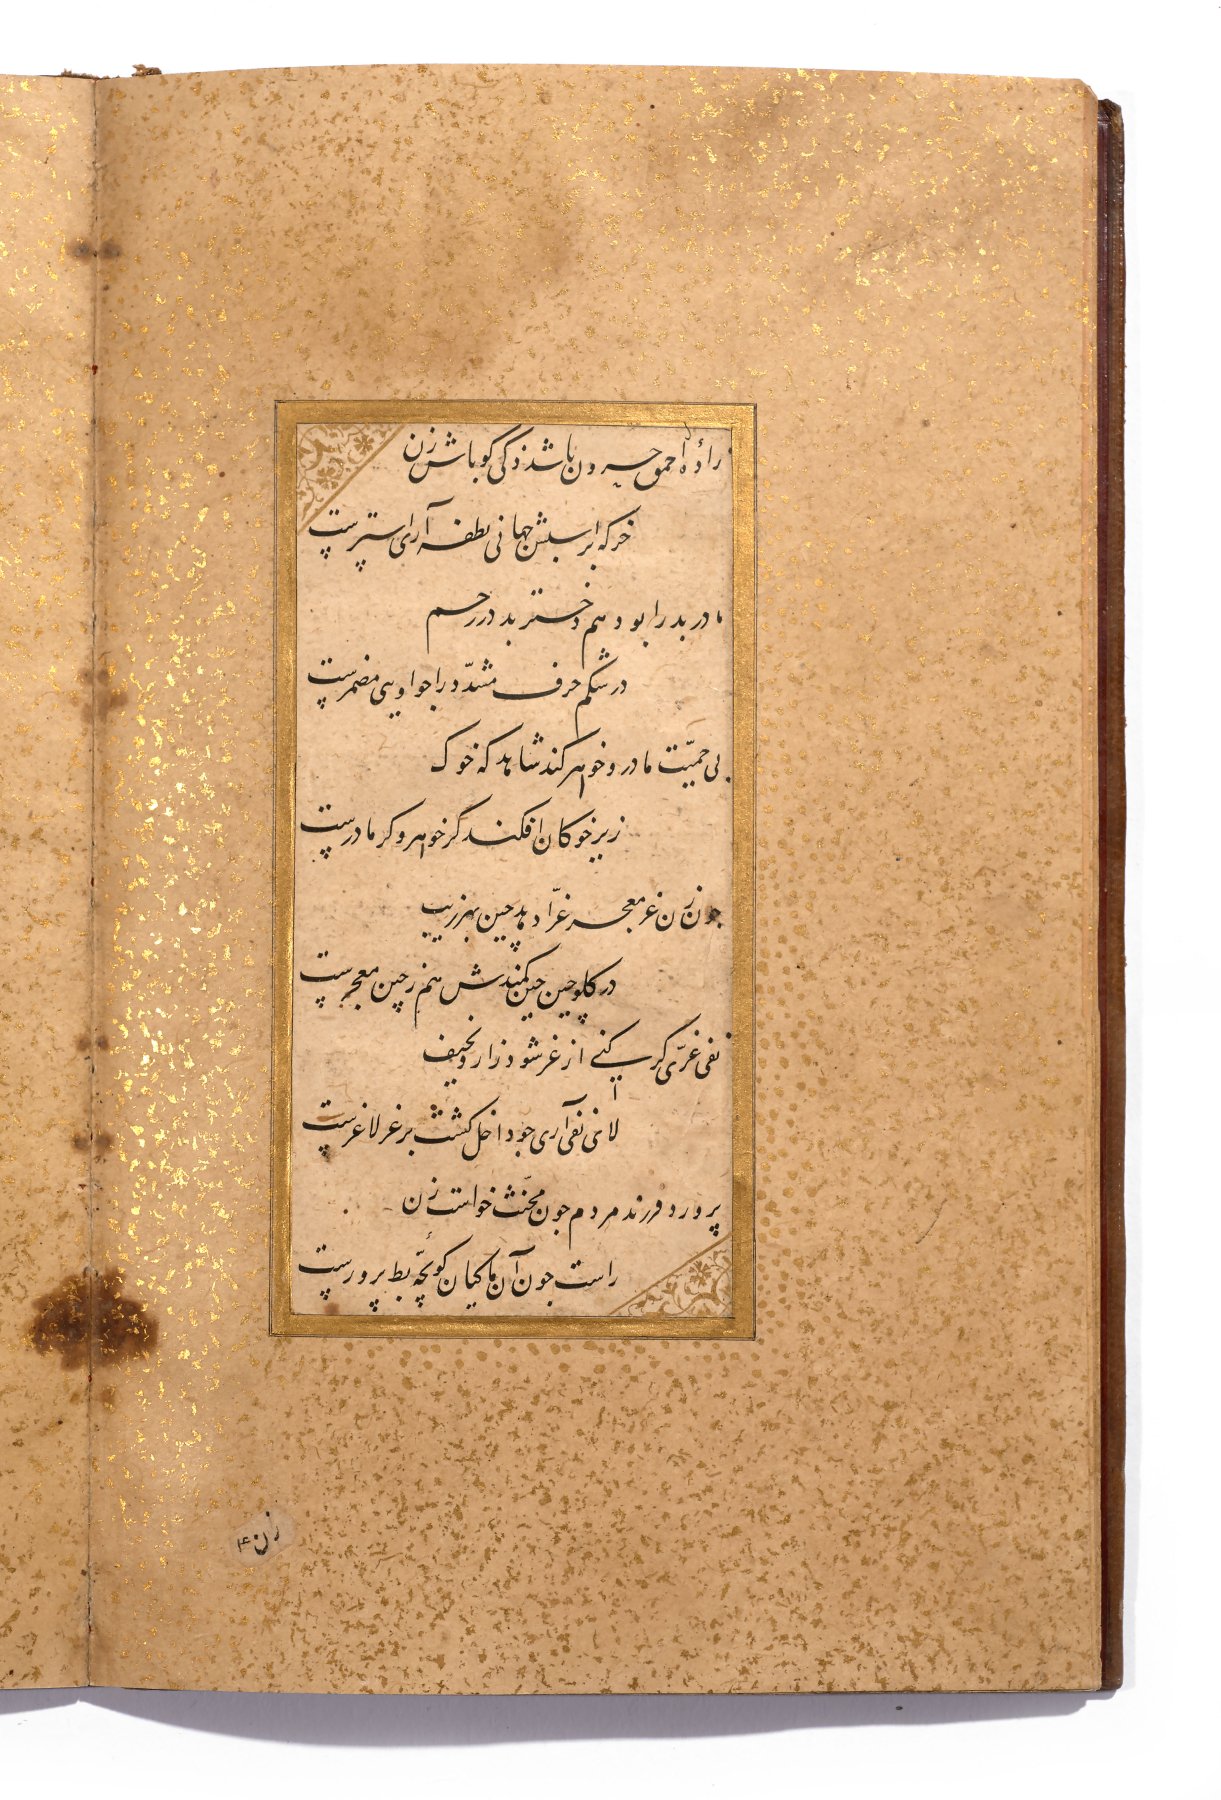 زادهٔ احمق چه دون باشد ذکی گو باش زن
خر که ابرسبش جهانی نطفه آرای استرست
مادر بد را بود هم دختر بد در رحم
در شکم حرف مشدد را جو او یی مضمرست
بی حمیّت مادر و خواهر کند شاهد که خوک
زیر خوکان افکند گر خواهر و گر مادرست
جون زن غر معجر غرّا دهد چین بهر زیب
در کلو چین چین کمندش هم ز چین معجرست
نفی غرّی گر کنی از غر شود زار و نحیف
لای نفی آری جو داخل کشت بر غر لاغرست
پرورد فرزند مردم جون مخنّث خواست زن
راست جون آن ماکیان کو بچّهٔ بط پرورست
زن ۴